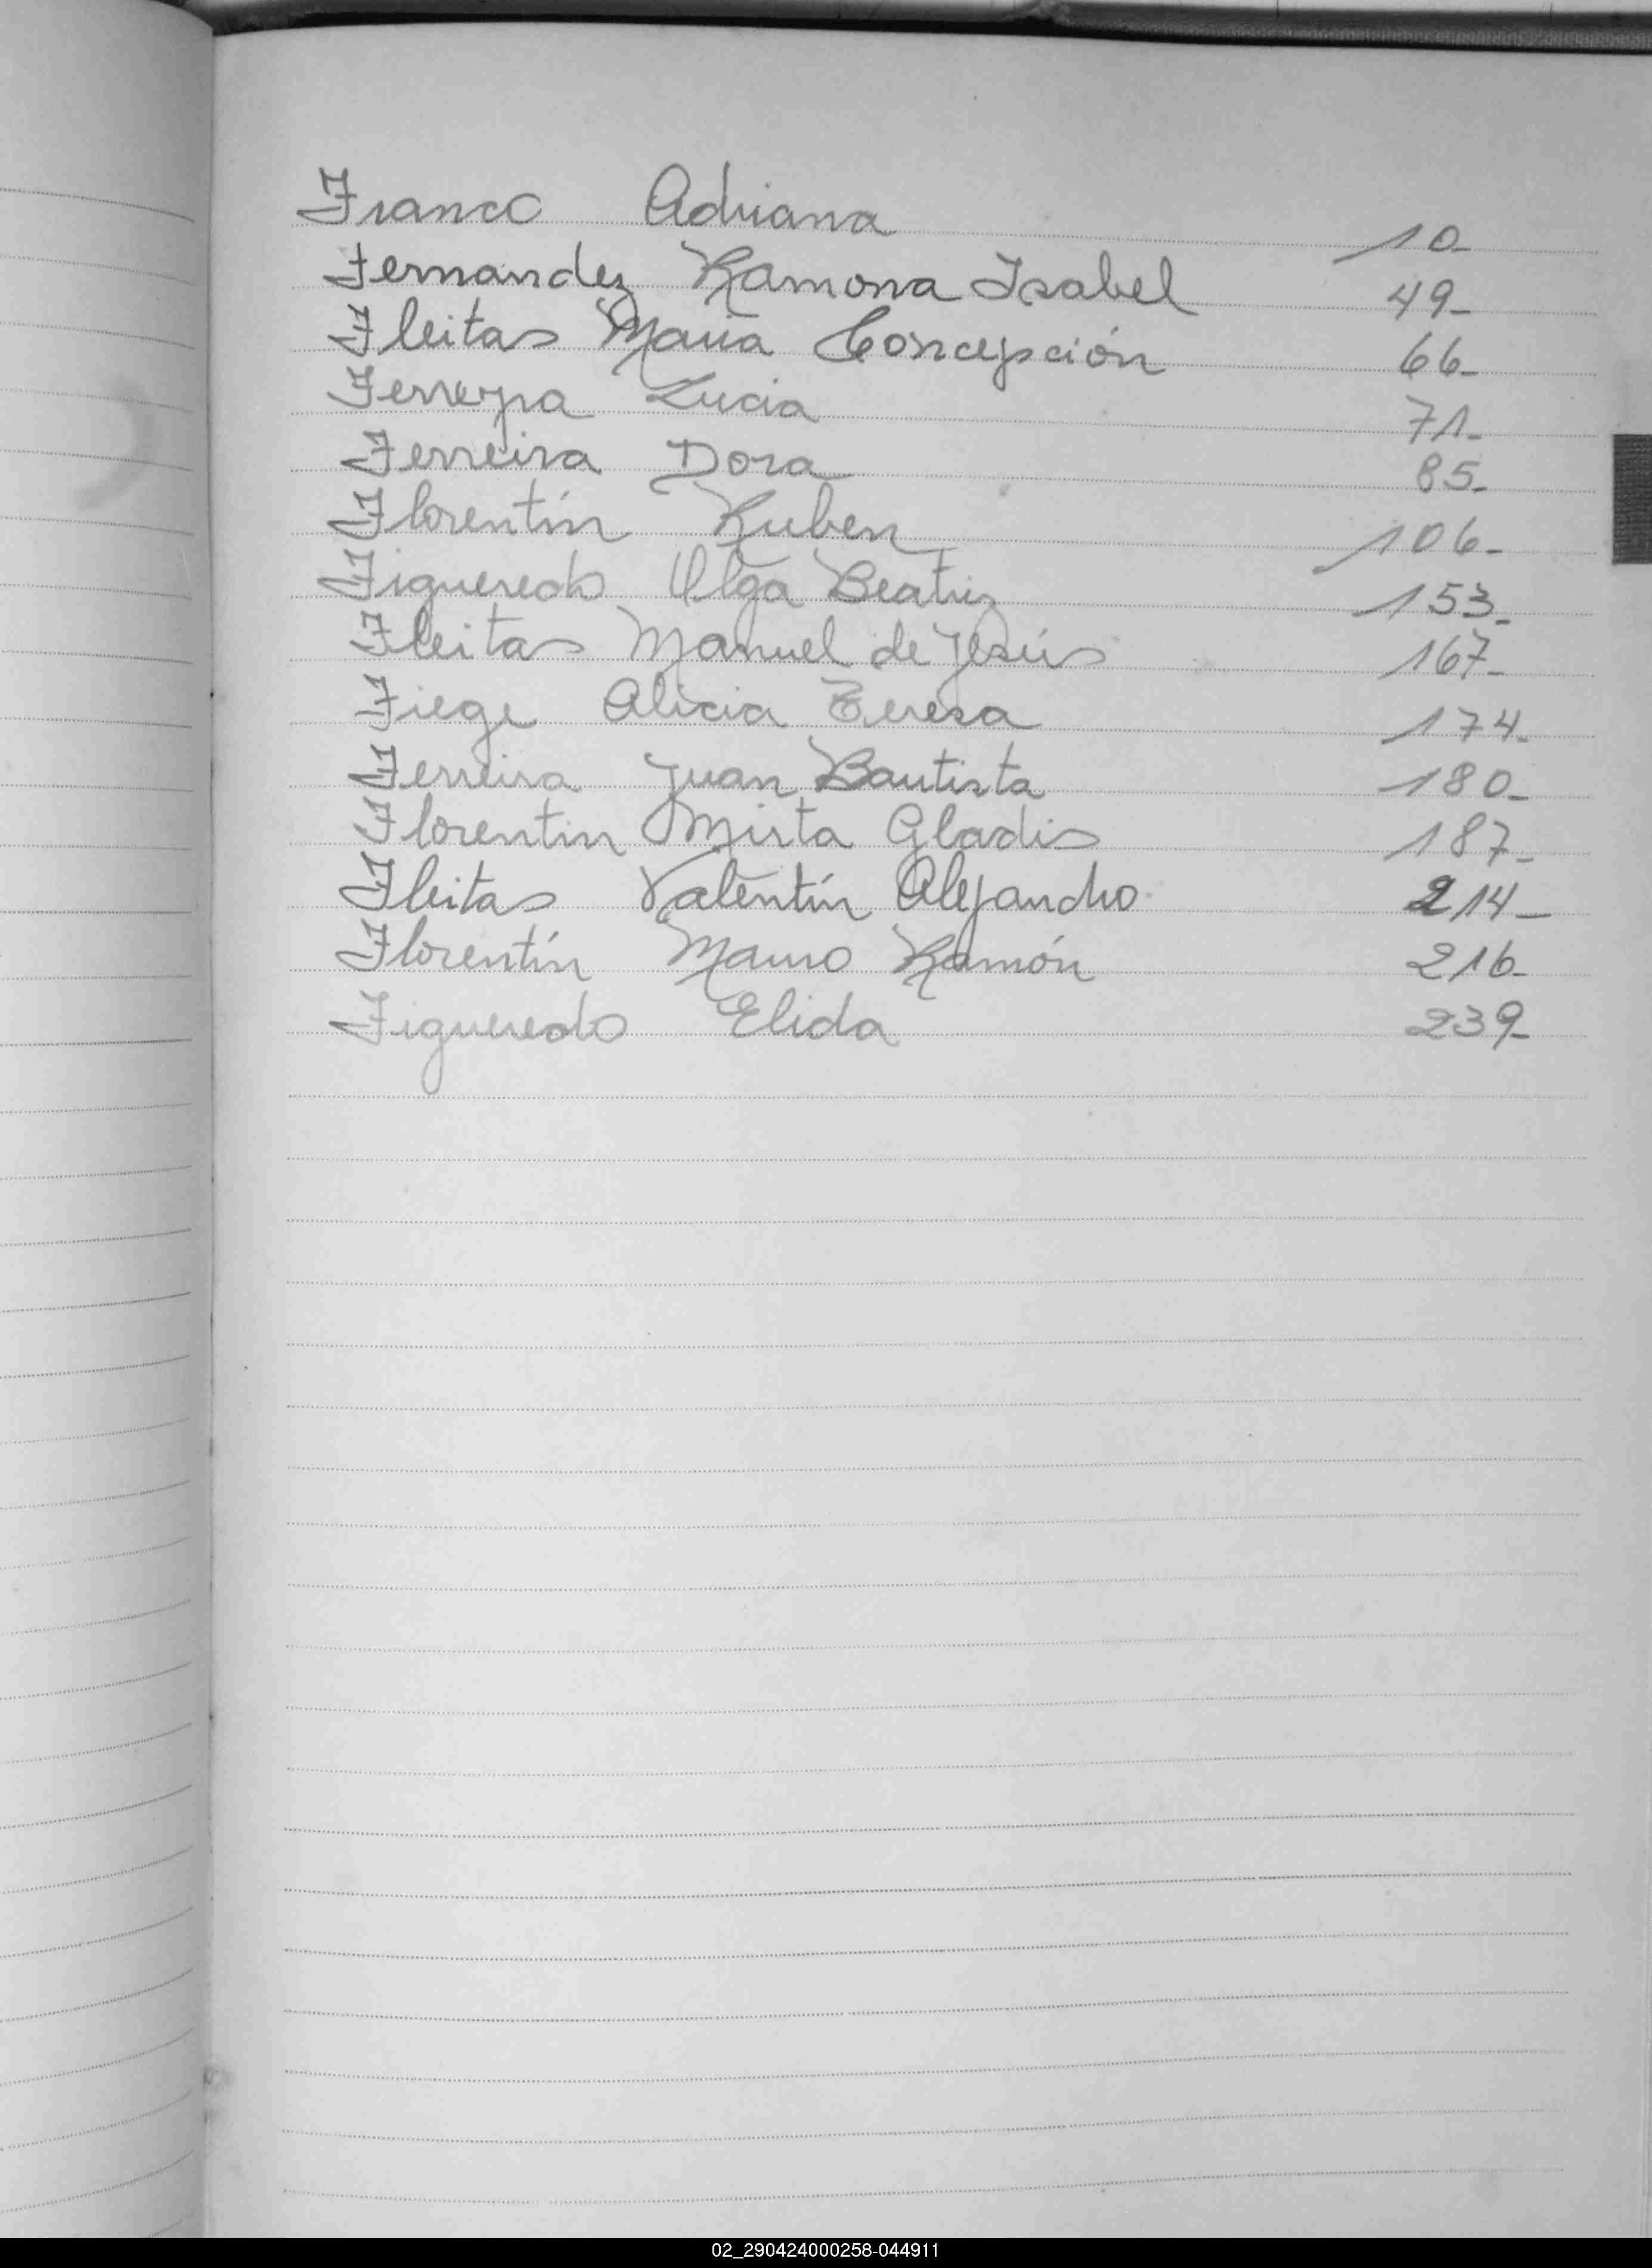 Franco Adriana 10-
Fernandez Ramona Isabel 49-
Fleitas Maria Concepción 66-
Ferreyra Lucia 71-
Ferreira Dora 85-
Florentín Ruben 106-
Figueredo Olga Beatriz 153-
Fleitas Manuel de Jesús 167-
Fiege Alicia Teresa 174-
Ferreira Juan Bautista 180-
Florentin Mirta Gladis 187-
Fleitas Valentín Alejandro 214-
Florentín Mauro Ramón 216-
Figueredo Elida 239-
02_290424000258-044911